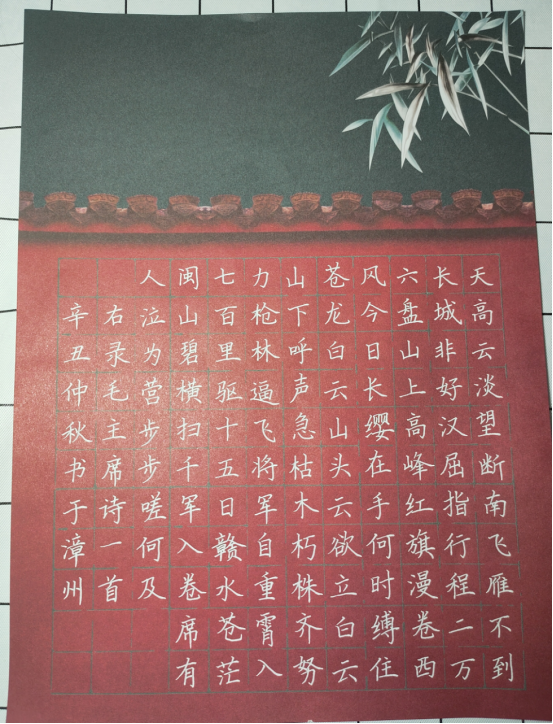 天高云淡望断南飞雁不到
长城非好汉屈指行程二万
六盘山上高峰红旗漫卷西
风今日长缨在手何时缚住
苍龙白云山头云欲立白云
山下呼声急枯木朽株齐努
力枪林逼飞将军自重霄入
七百里驱十五日赣水苍茫
闽山碧横扫千军入卷席有
人泣为营步步嗟何及
右录毛主席诗一首
辛丑仲秋书于漳州